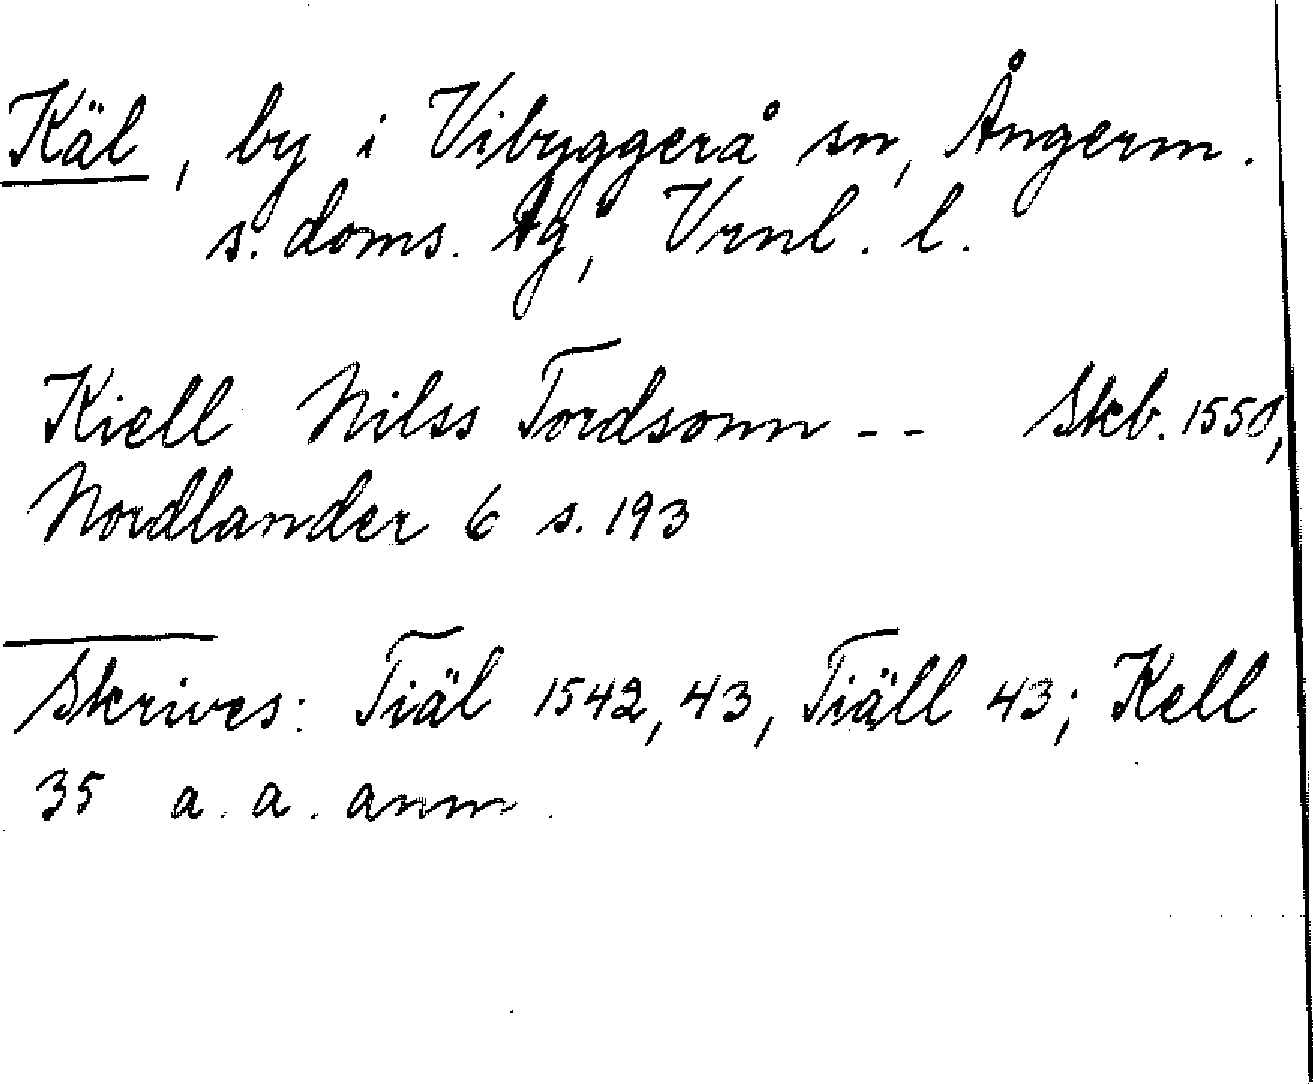 Käl, by i Vibyggerå sn, Ångerm.
s. doms. tg, Vrnl. l.
Kiell Nilss Tordsonn -- Skb. 1550,
Nordlander 6 s. 193
Skrives: Tiäl 1542, 43, Tiäll 43; Kell
35 a. a. anm.